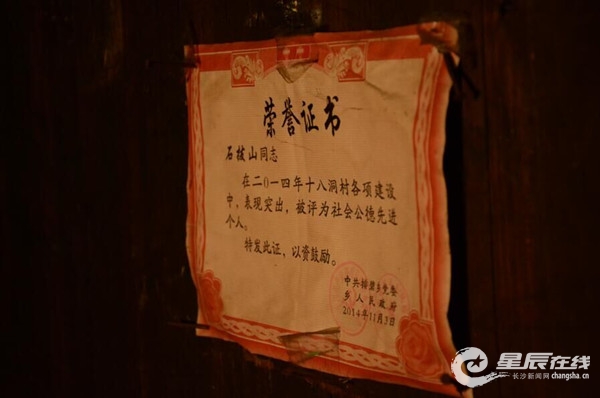 荣誉证书
石拔山同志
在二〇一四年十八洞村各项建设
中，表现突出，被评为社会公德先进
个人。
特发此证，以资鼓励。
中共排碧乡党委
乡人民政府
2014年11月3日
星辰在线
长沙新闻网 changsha.cn